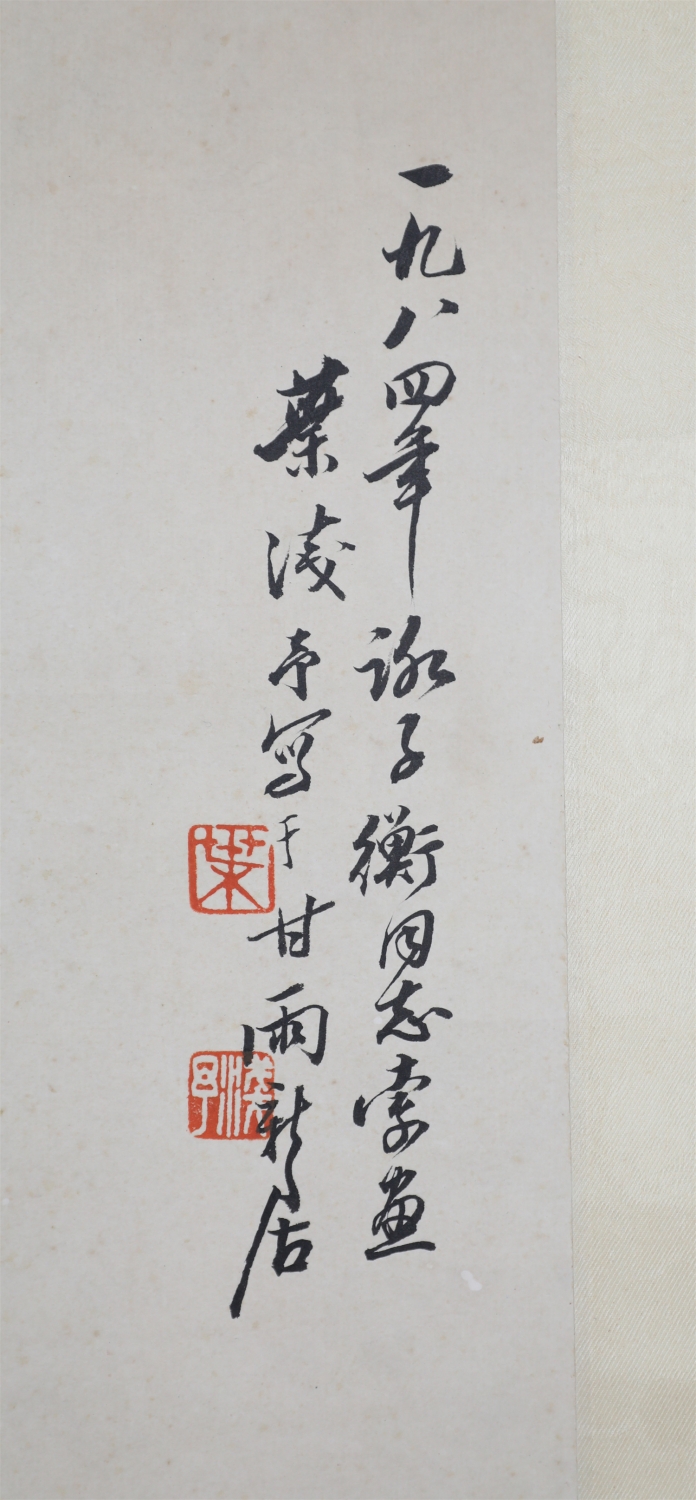 一九八四年詠子衡同志索画
葉浅予写于甘雨新居
葉
淺予